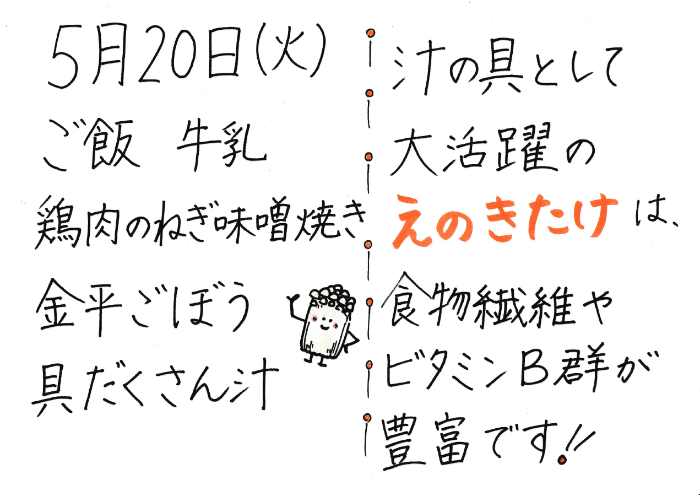 5月20日(火)
ご飯 牛乳
鶏肉のねぎ味噌焼き
金平ごぼう
具だくさん汁
汁の具として
大活躍の
えのきたけは、
食物繊維や
ビタミンB群が
豊富です!!